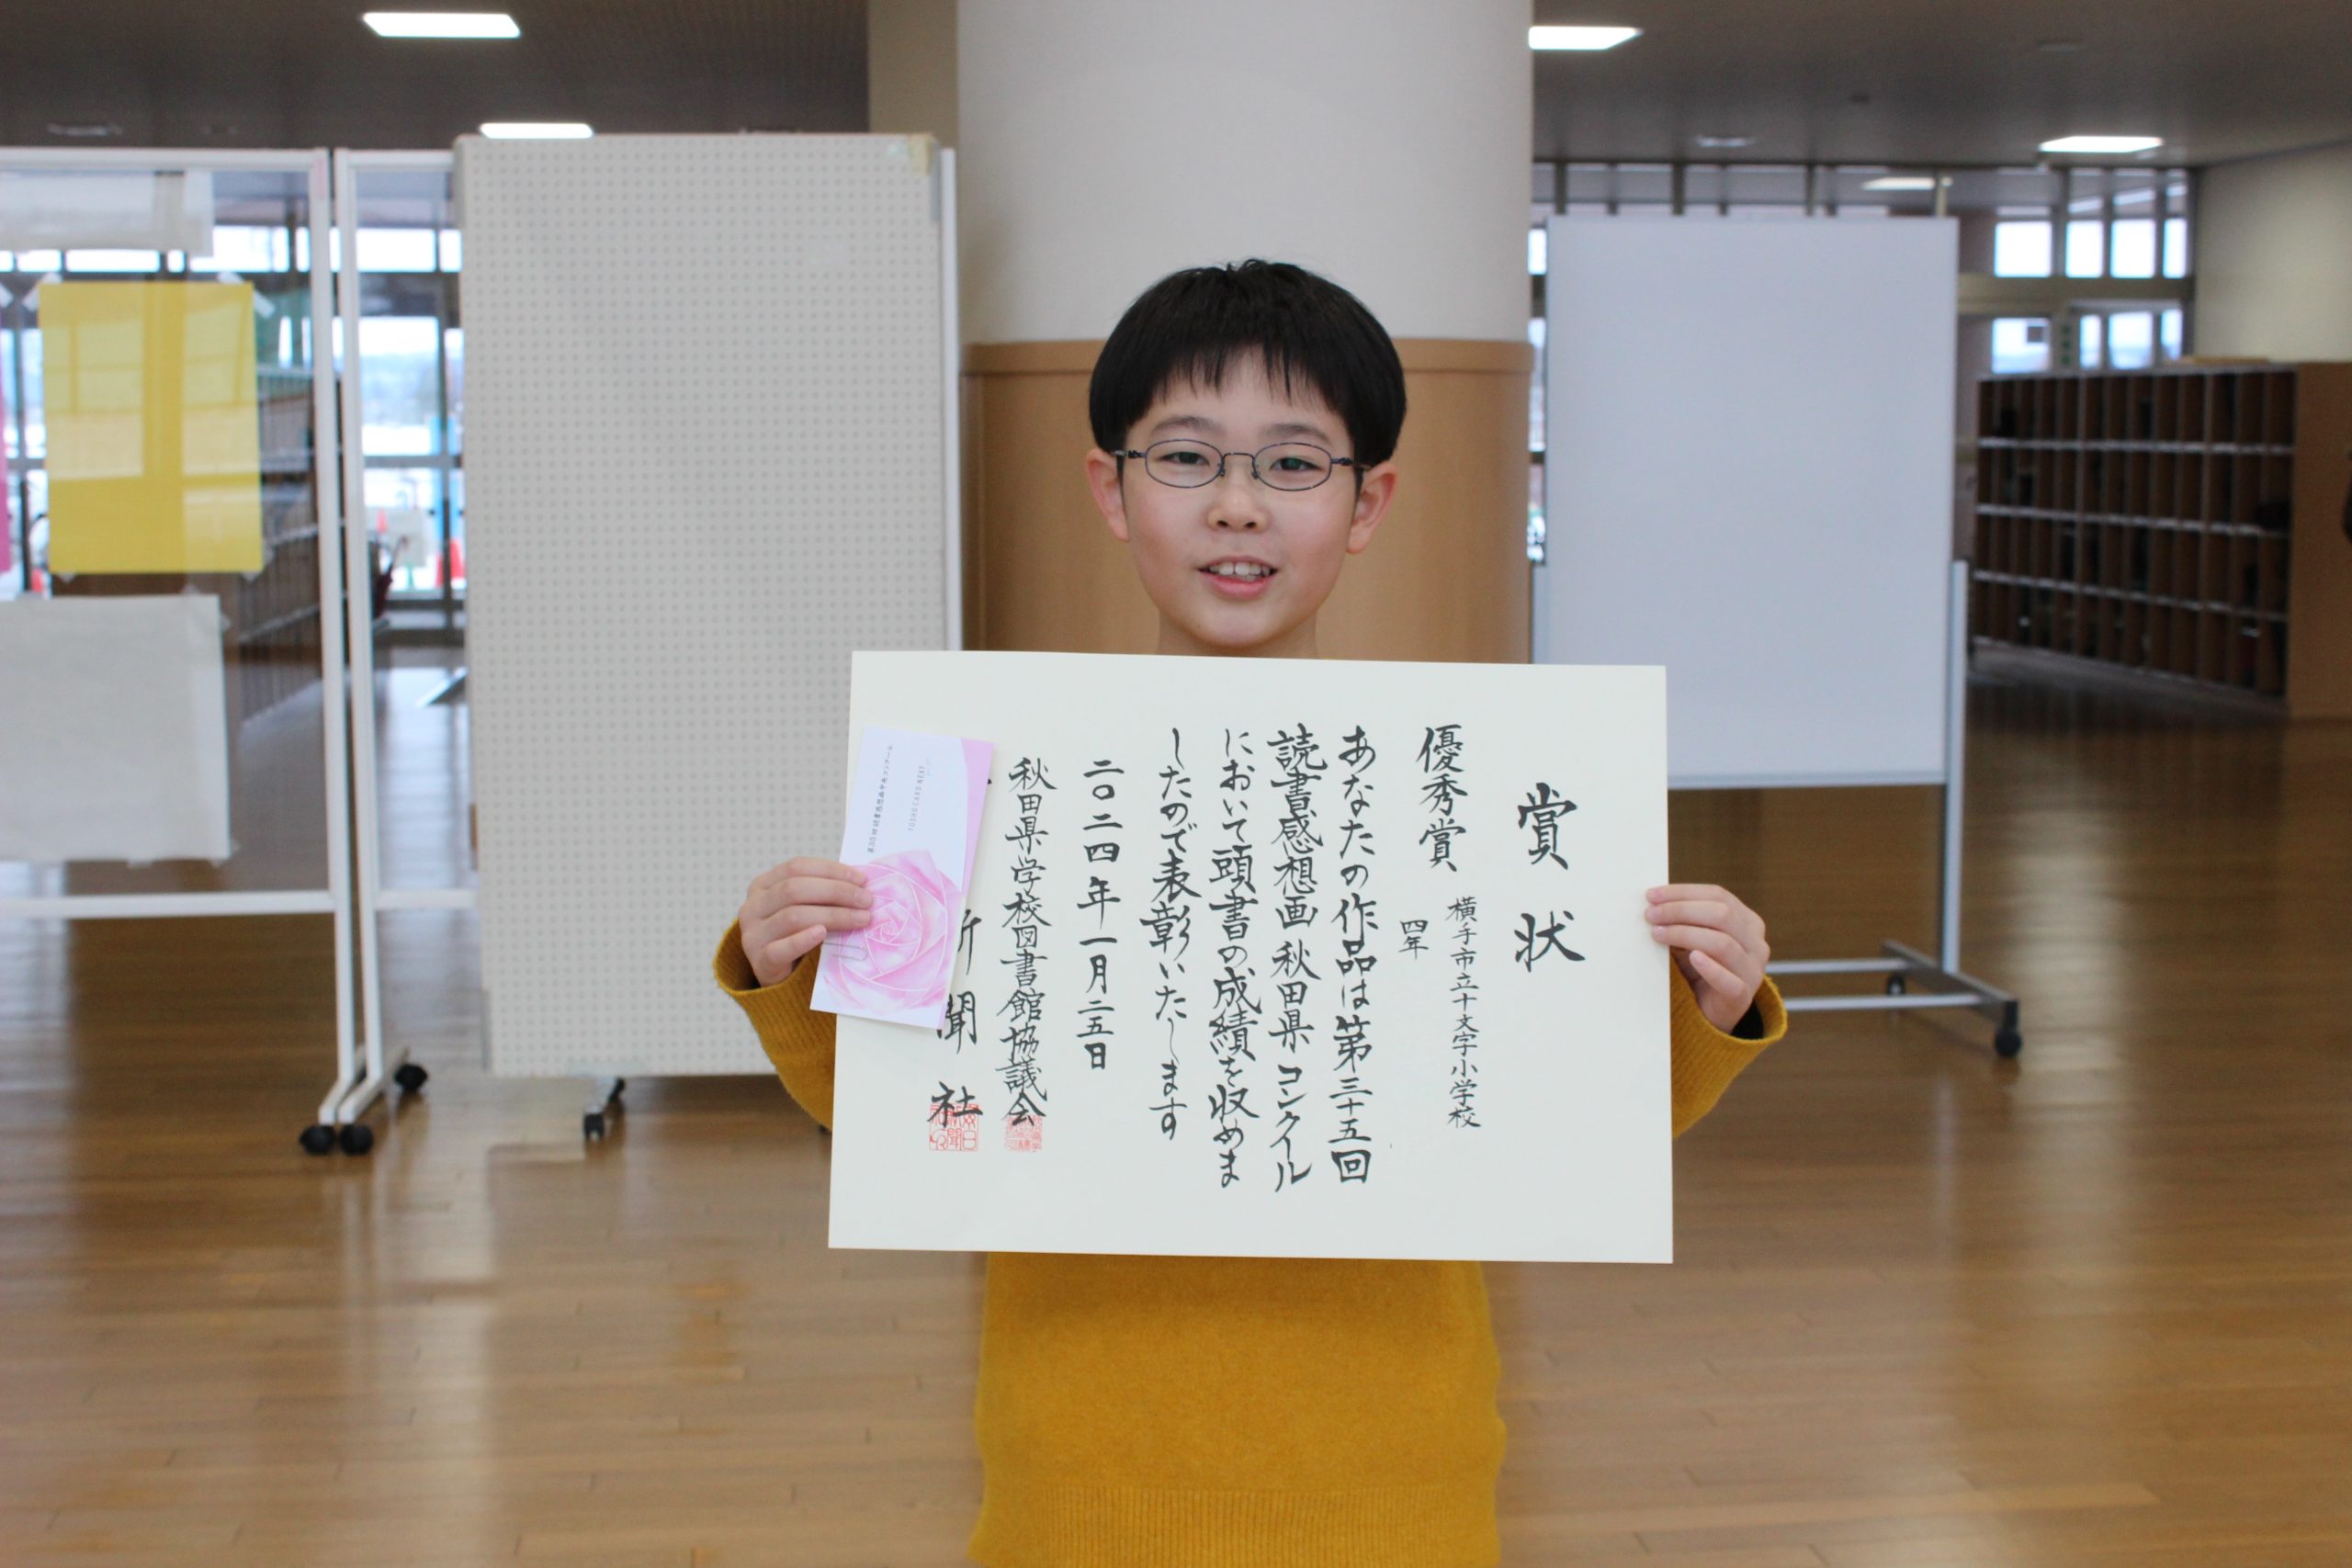 賞状
優秀賞
横手市立十文字小学校
四年
あなたの作品は第三十五回
読書感想画秋田県コンクール
において頭書の成績を収めま
したので表彰いたします
二〇二四年一月二五日
秋田県学校図書館協議会
新聞社
TOSHO CARD NEXT